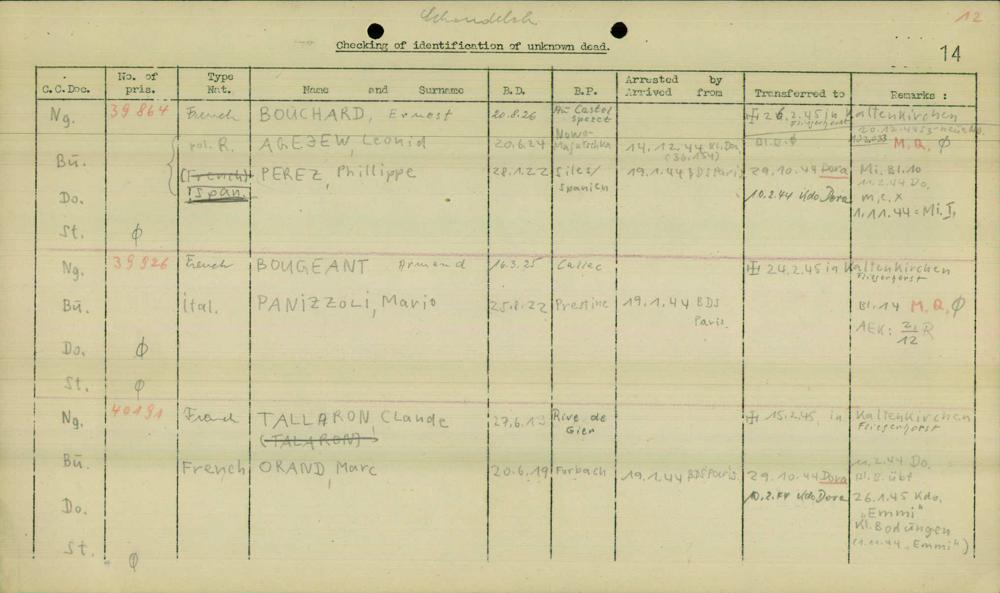 12
Checking of identification of unknown dead.
14
C.C.Doc. No. of pris. Type Nat. Name and Surname B.D. B.P. Arrested by Arrived from Transferred to Remarks :
Ng. 39864 French BOUCHARD, Ernest 20.8.26 26.2.45 in Kaltenkirchen
Fliegerhorst
Bü. pol. R. AGEJEW, Leonid 20.6.24 Nowo- 14.12.44 Kl. Do. M.Q. ∅
(36.154)
(French) PEREZ, Phillippe 28.1.22 Siles/ Spanien 19.1.44 BDS Paris 29.10.44 Dora Mi. Bl.10
Span. 10.2.44 Kdo Dora 11.2.44 Do.
Do. m.e.x
1.11.44 = Mi. I,
St. ∅
Ng. 39926 French BOUGEANT Armand 16.3.25 Callac 24.2.45 in Kaltenkirchen
Fliegerhorst
Bü. Ital. PANIZZOLI, Mario 25.8.22 Prestine 19.1.44 BDS Paris. Bl.14 M.Q. ∅
AEK: 2./12 R
Do. ∅
St. ∅
Ng. 40191 French TALLARON, Claude 27.6.13 Rive de Gier 15.2.45, in Kaltenkirchen
(TALARON) Fliegerhorst
Bü. French ORAND, Marc 20.6.19 Forbach 19.1.44 BDS Paris. 29.10.44 Dora 11.2.44 Do.
10.2.44 Kdo Dora 26.1.45 Kdo.
Do. "Emmi"
Kl. Bodungen
(1.11.44 "Emmi")
St. ∅